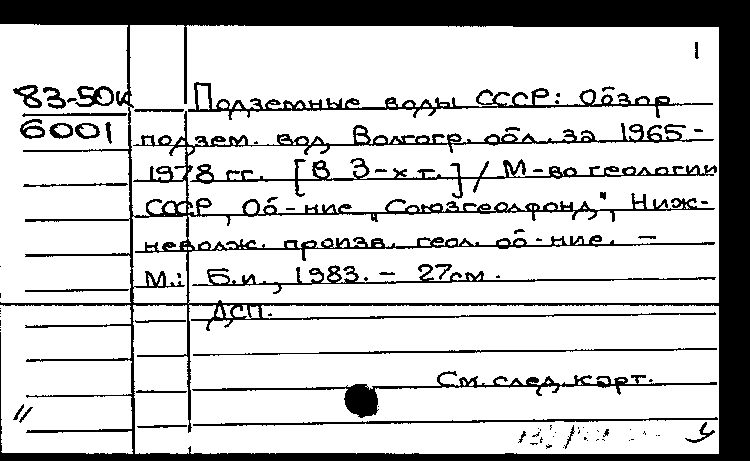 1
83-50к
6001
Подземные воды СССР: Обзор
подзем. вод Волгогр. обл. за 1965-
1978 гг. [В 3-х т.] / М-во геологии
СССР, Об-ние "Союзгеолфонд", Ниж-
неволж. произв. геол. об-ние. —
М.: Б.и., 1983. – 27см.
ДСП.
См. след. карт.